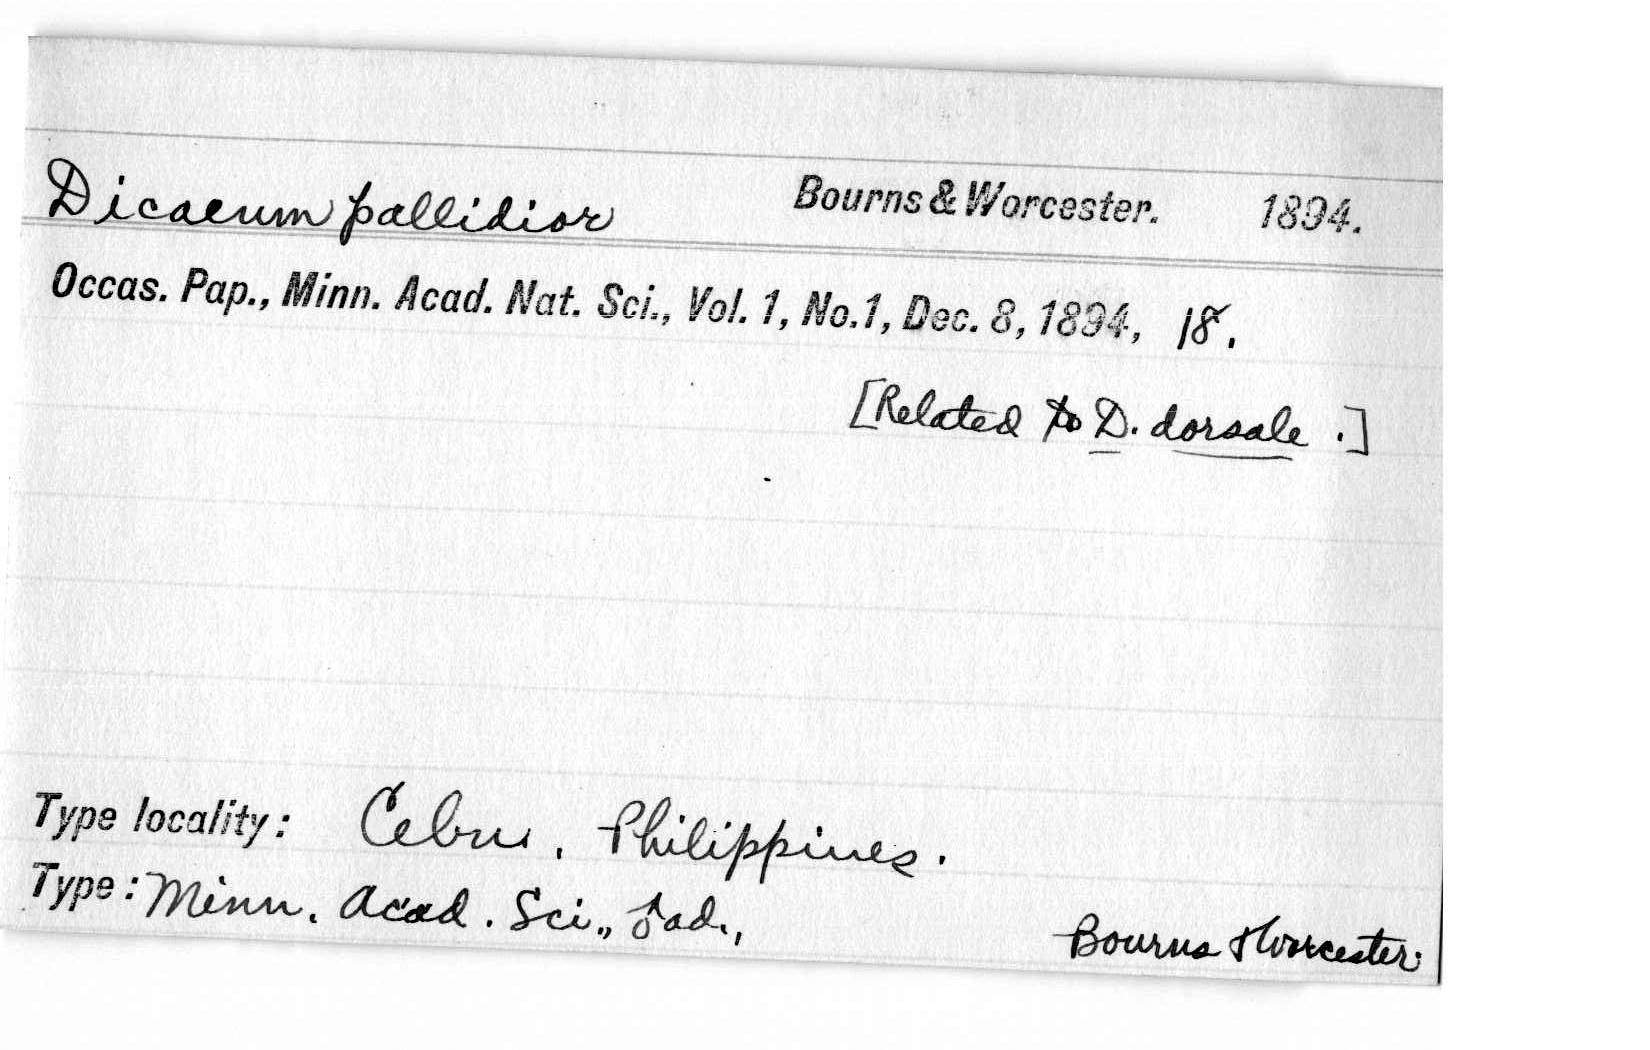 Dicaeum pallidior Bourns & Worcester. 1894.
Occas. Pap., Minn. Acad. Nat. Sci., Vol. 1, No. 1, Dec. 8, 1894, 18.
[Related to D. dorsale .]
Type locality: Cebu, Philippines.
Type: Minn. Acad. Sci., ♂ ad.,
Bourns & Worcester.